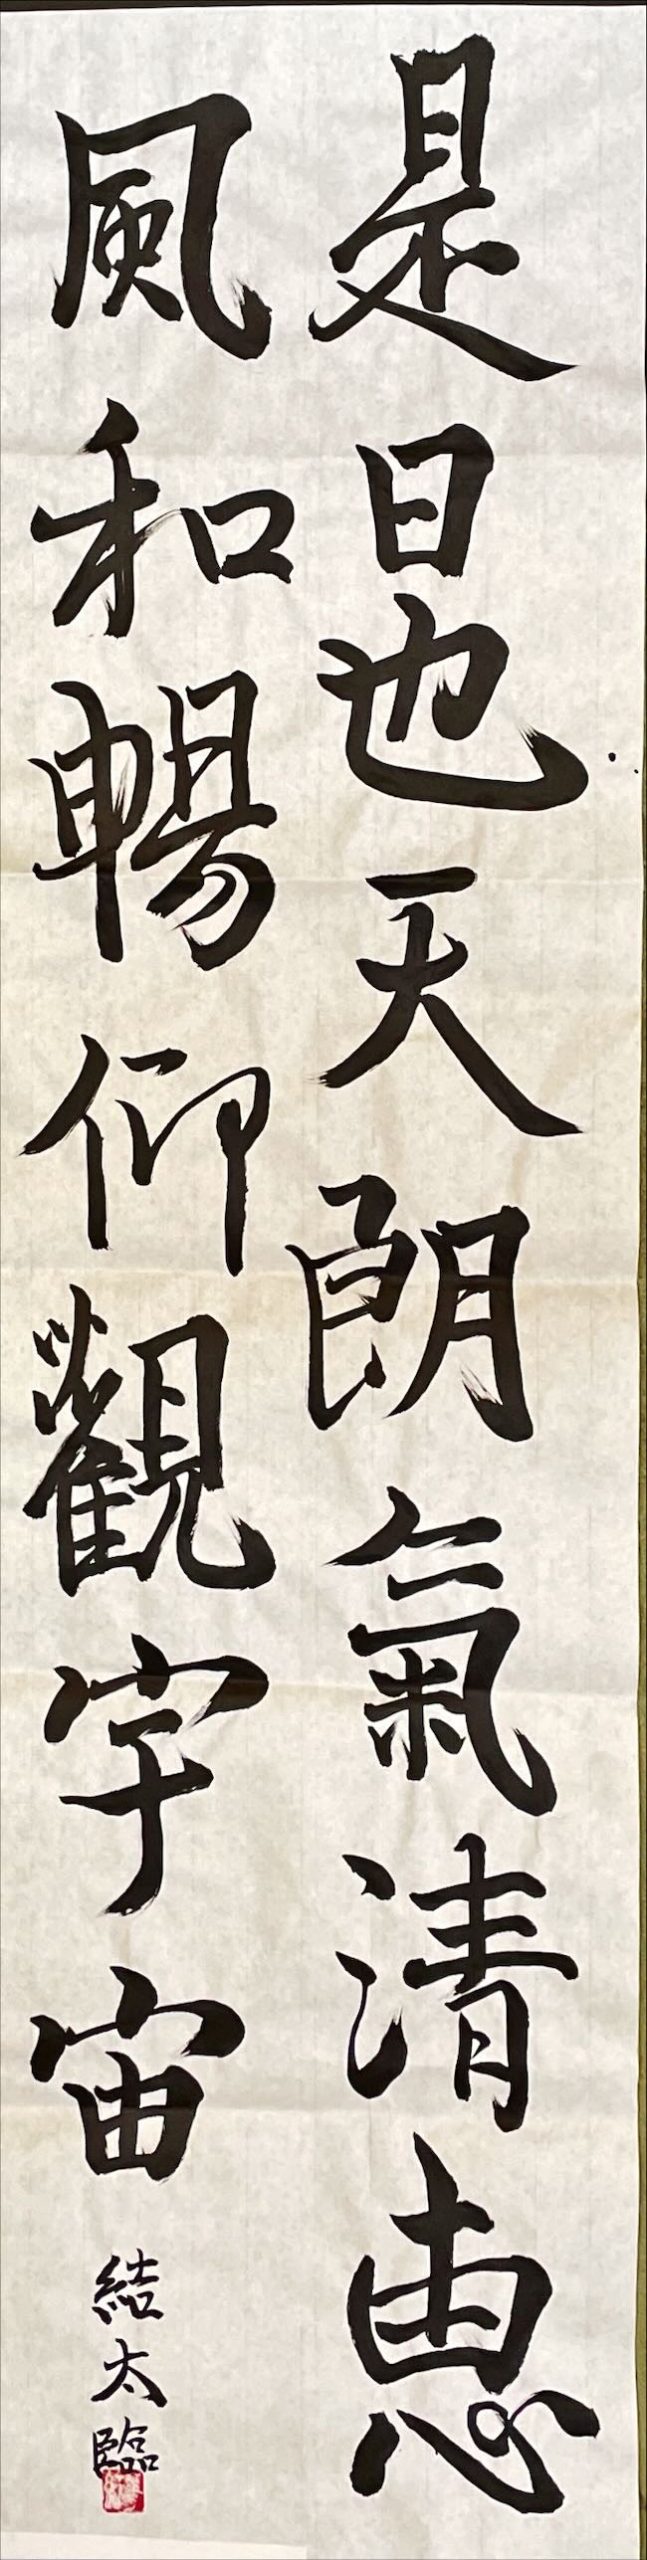 是日也天朗氣清恵
風和暢仰觀宇宙
結太臨